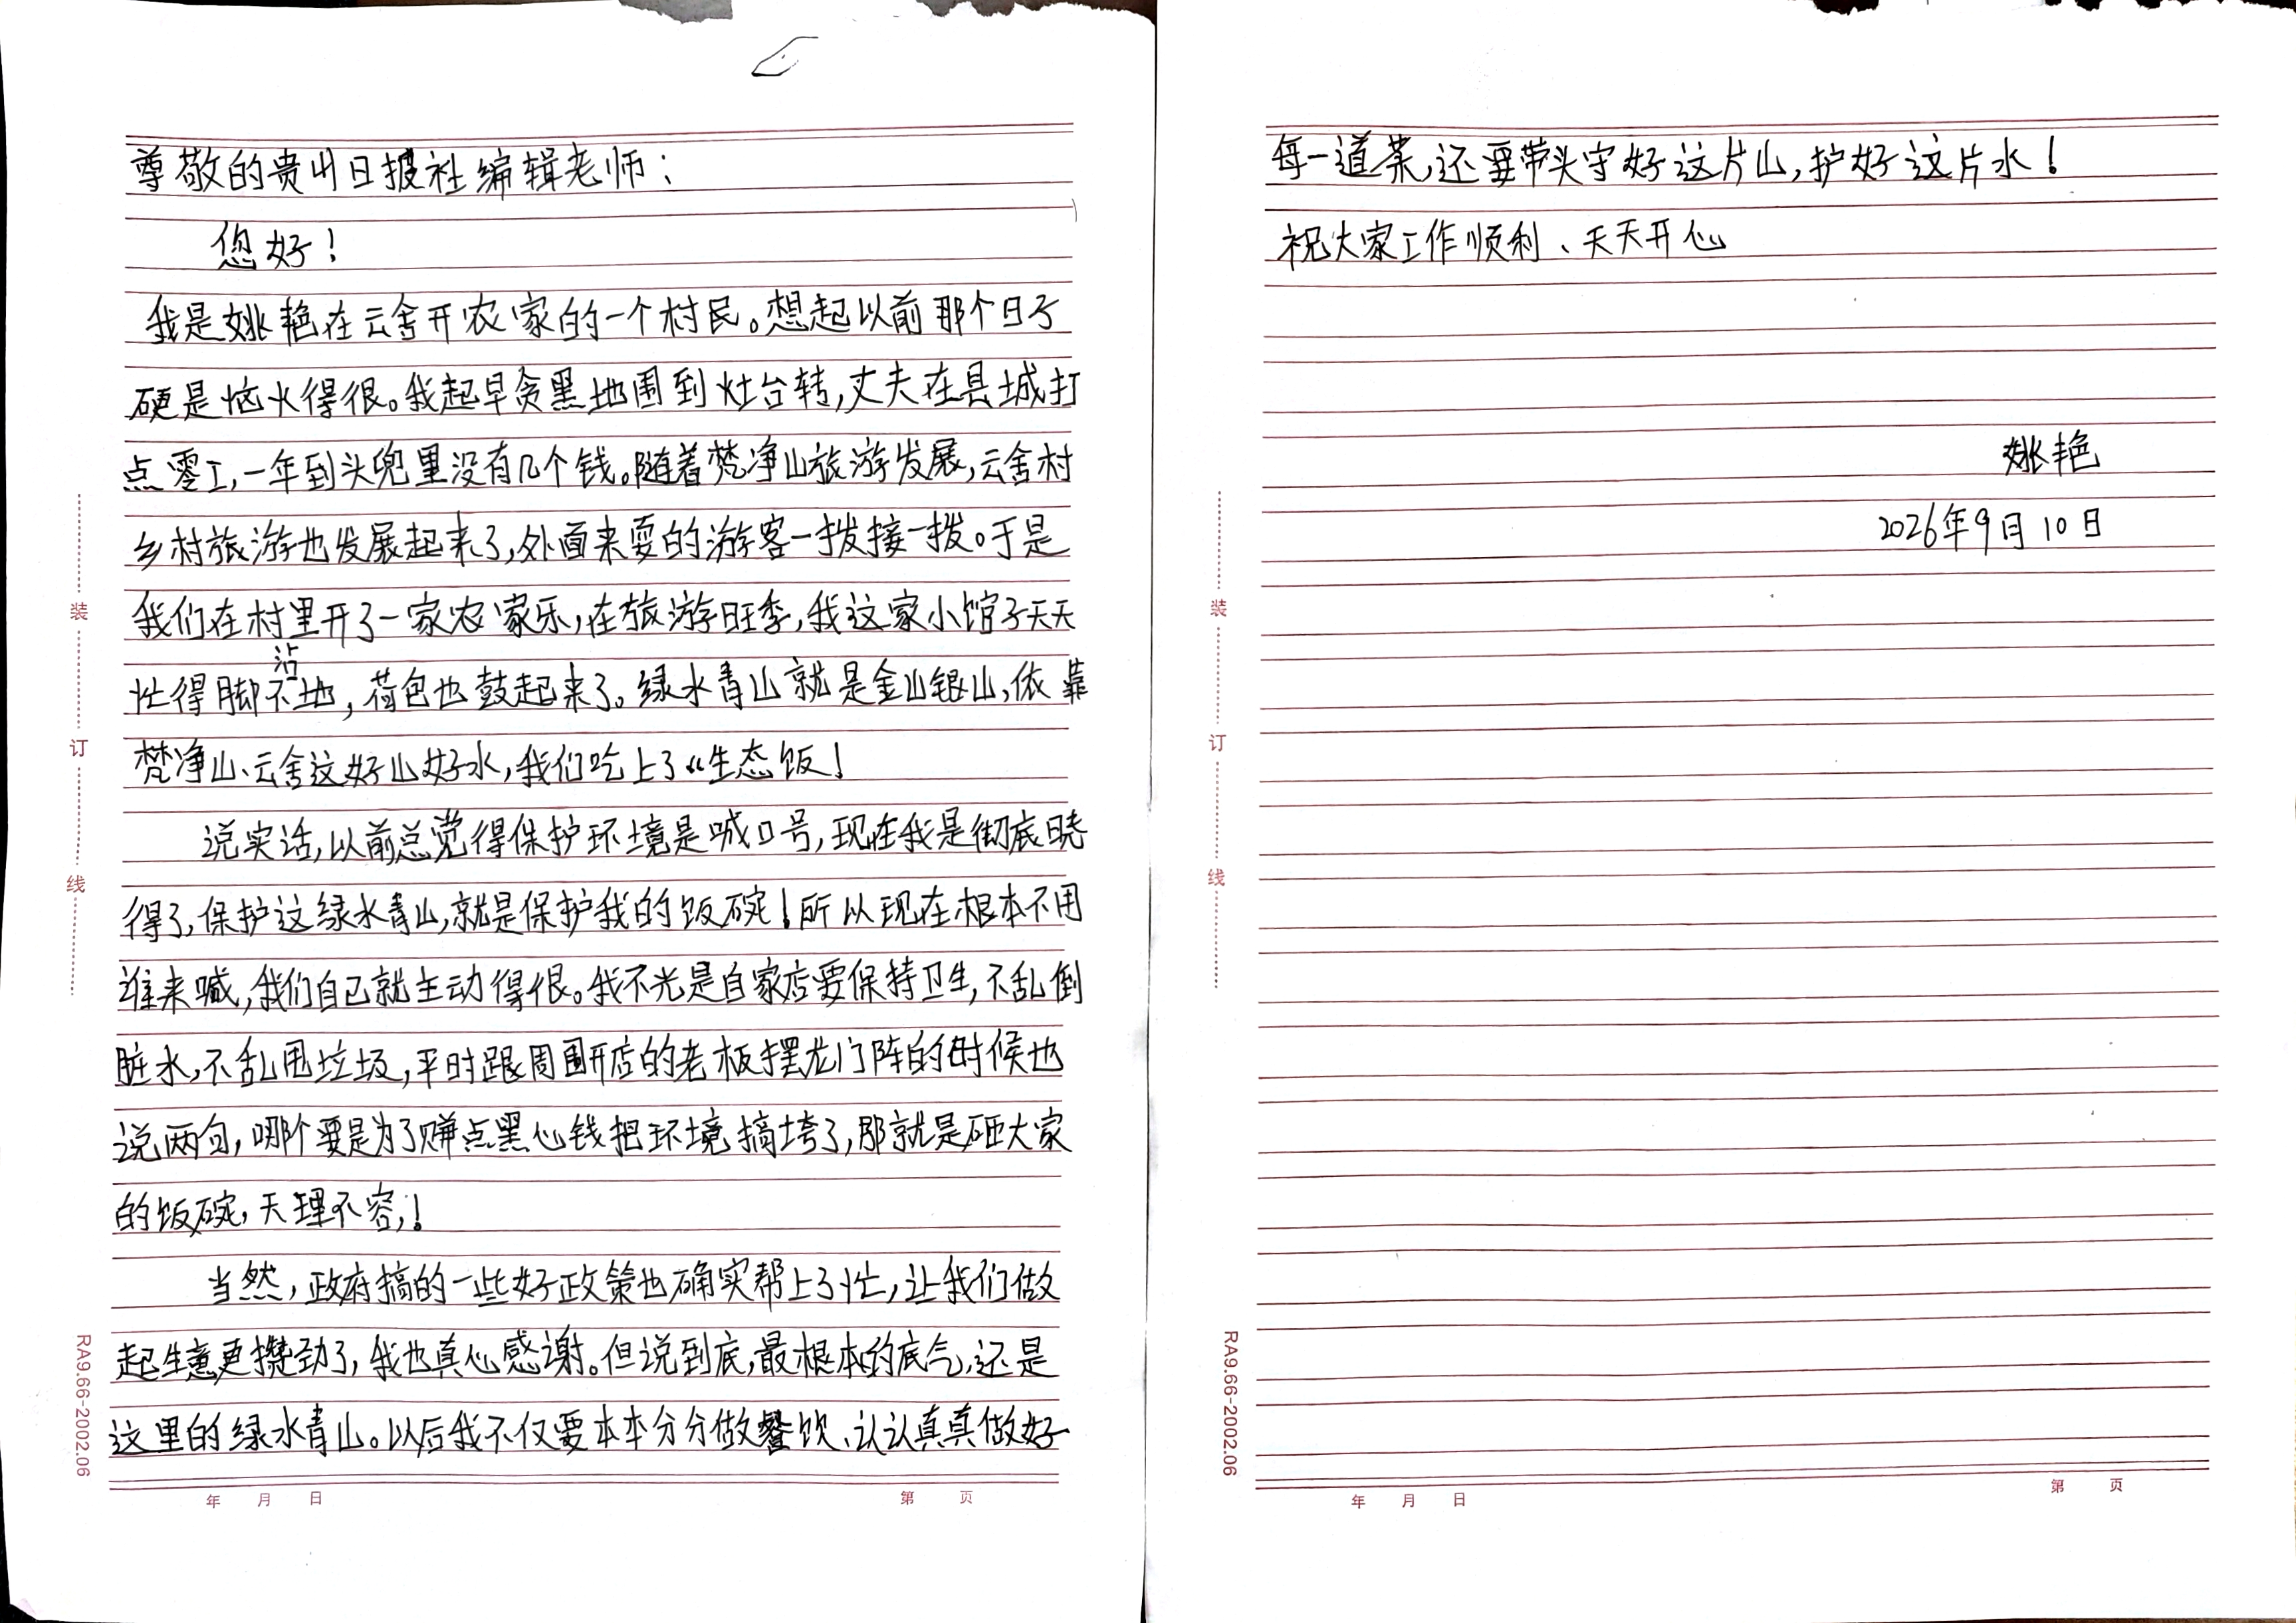 尊敬的贵州日报社编辑老师：
您好！
我是姚艳在云舍开农家的一个村民。想起以前那个日子
硬是恼火得很。我起早贪黑地围到灶台转，丈夫在县城打
点零工，一年到头兜里没有几个钱。随着梵净山旅游发展，云舍村
乡村旅游也发展起来了，外面来耍的游客一拨接一拨。于是
我们在村里开了一家农家乐，在旅游旺季，我这家小馆子天天
忙得脚不沾地，荷包也鼓起来了。绿水青山就是金山银山，依靠
梵净山、云舍这好山好水，我们吃上了“生态饭！
说实话，以前总觉得保护环境是喊口号，现在我是彻底晓
得了，保护这绿水青山，就是保护我的饭碗！所以现在根本不用
谁来喊，我们自己就主动得很。我不光是自家店要保持卫生，不乱倒
脏水，不乱甩垃圾，平时跟周围开店的老板摆龙门阵的时候也
说两句，哪个要是为了赚点黑心钱把环境搞垮了，那就是砸大家
的饭碗，天理不容，！
当然，政府搞的一些好政策也确实帮上了忙，让我们做
起生意更攒劲了，我也真心感谢。但说到底，最根本的底气，还是
这里的绿水青山。以后我不仅要本本分分做餐饮、认认真真做好
年 月 日 第 页
装
订
线
RA9.66-2002.06
每一道菜，还要带头守好这片山，护好这片水！
祝大家工作顺利、天天开心
姚艳
2026年9月10日
装
订
线
RA9.66-2002.06
年 月 日 第 页